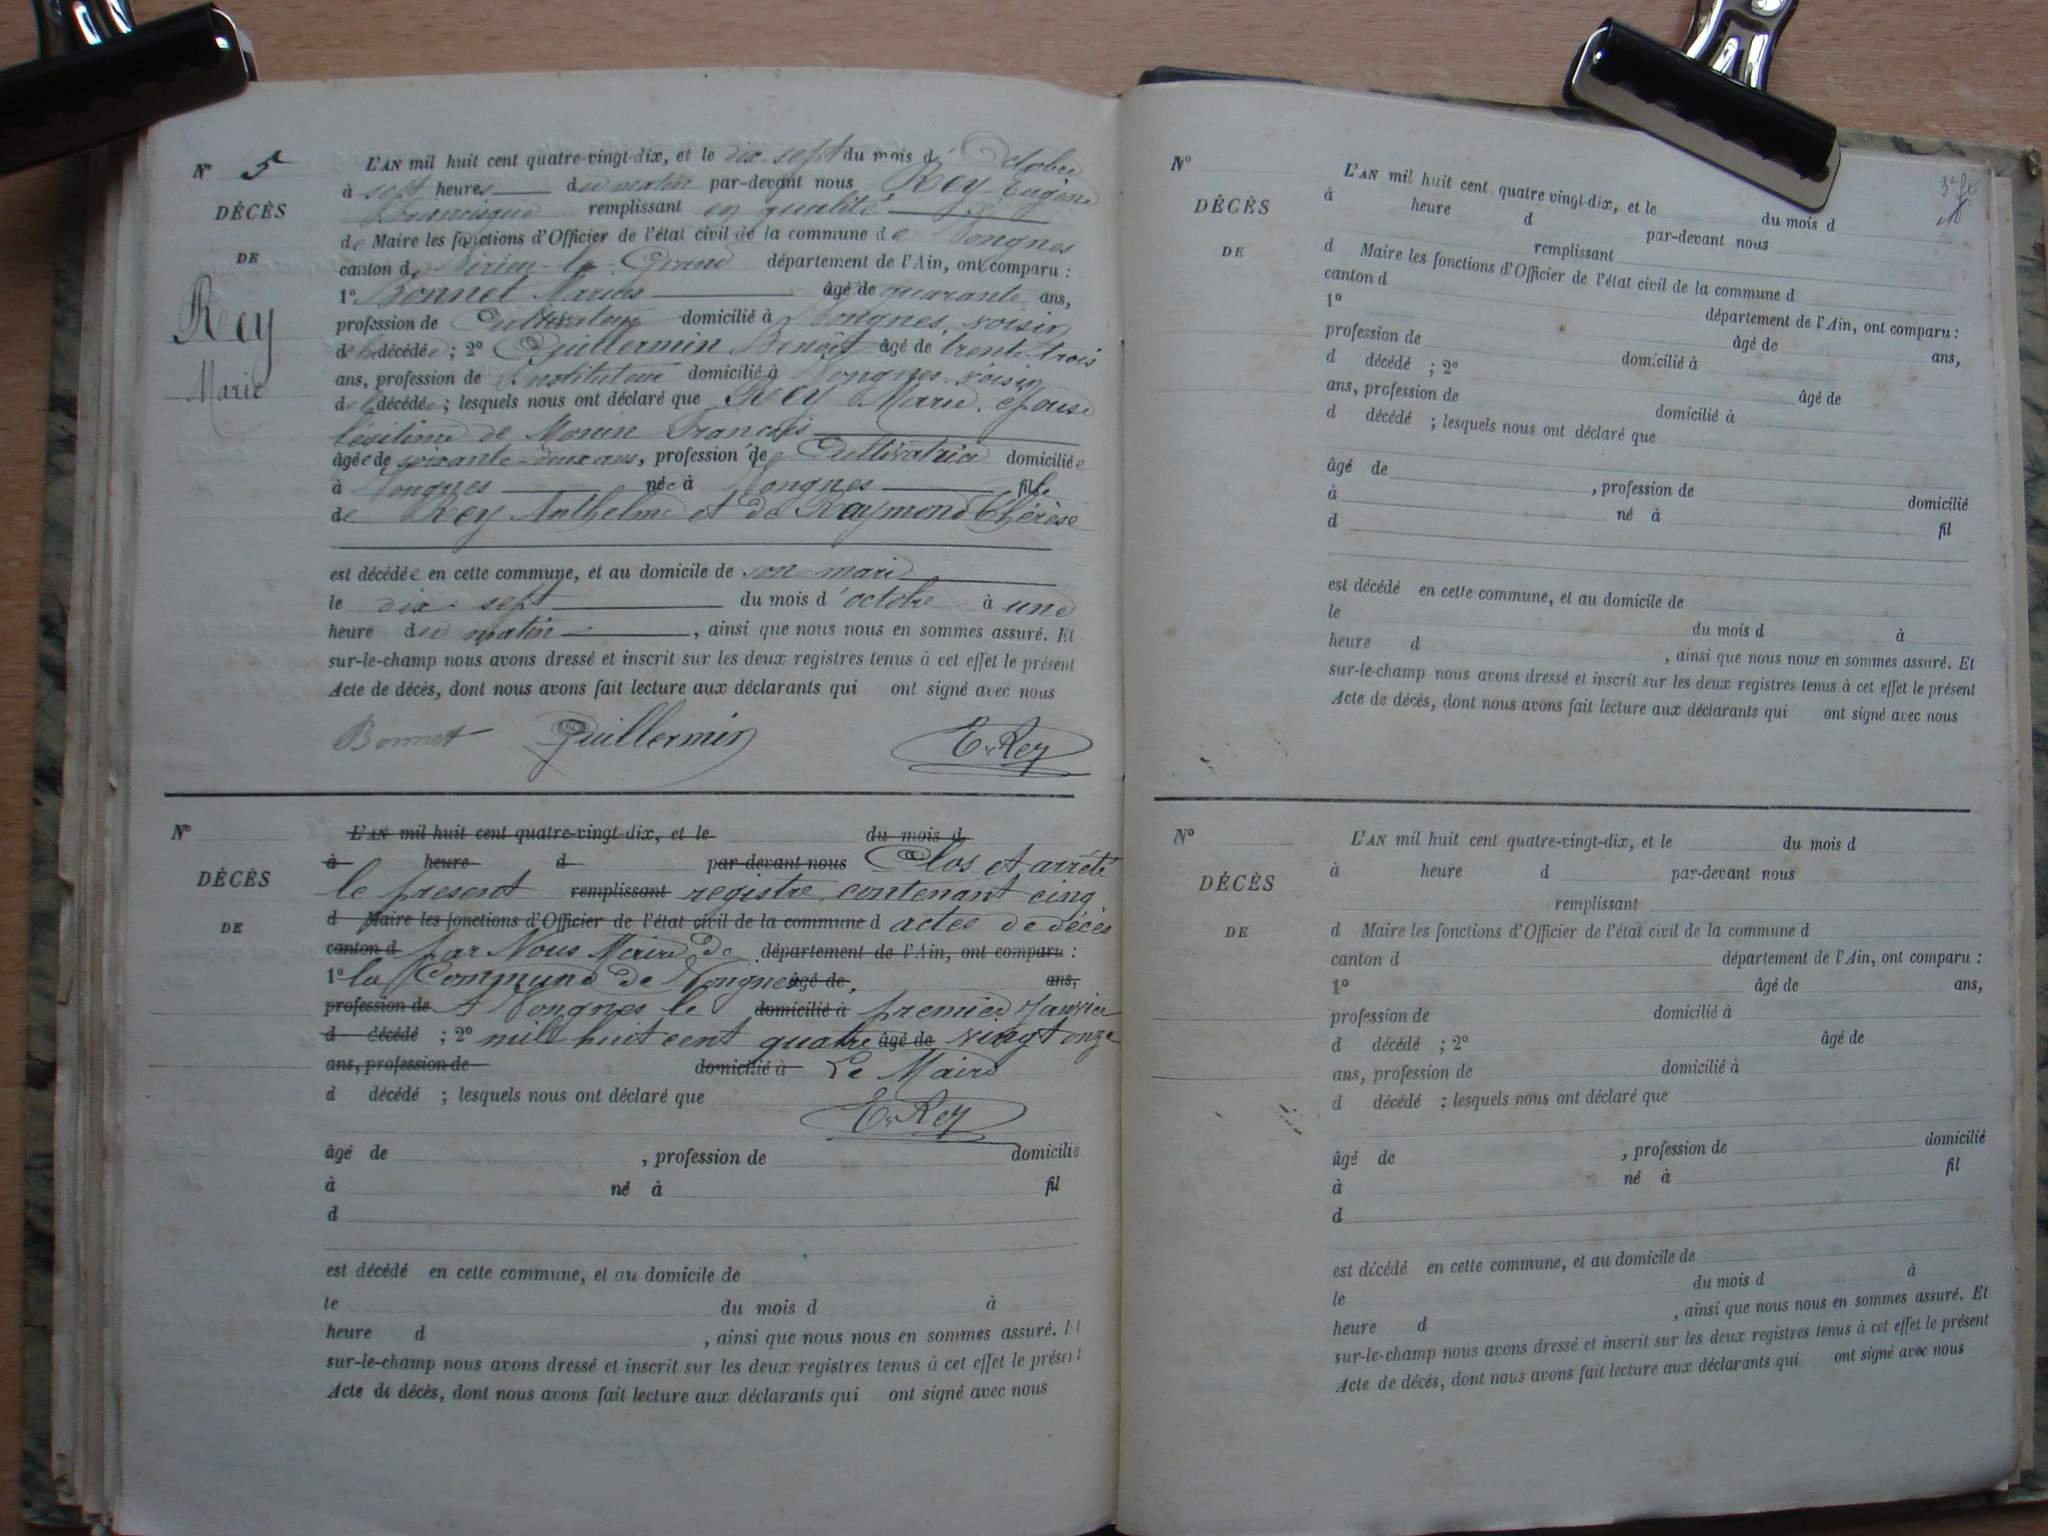 N° 5
DÉCÈS
DE
Rey
Marie
L'AN mil huit cent quatre-vingt-dix, et le dix sept du mois d'Octobre
à sept heures du matin par-devant nous Rey Eugène
Francisque remplissant en qualité
de Maire les fonctions d'Officier de l'état civil de la commune de Vongnes
canton de Virieu-le-Grand département de l'Ain, ont comparu :
1° Bonnet Marius âgé de quarante ans,
profession de Cultivateur domicilié à Vongnes, voisin
de la décédée ; 2° Guillermin Benoît âgé de trente-trois
ans, profession de Instituteur domicilié à Vongnes, voisin
de la décédée ; lesquels nous ont déclaré que Rey Marie, épouse
légitime de Monin François
âgée de soixante-deux ans, profession de Cultivatrice domiciliée
à Vongnes née à Vongnes fille
de Rey Anthelme et de Raymond Thérèse
est décédée en cette commune, et au domicile de son mari
le dix-sept du mois d'octobre à une
heure du matin, ainsi que nous nous en sommes assuré. Et
sur-le-champ nous avons dressé et inscrit sur les deux registres tenus à cet effet le présent
Acte de décès, dont nous avons fait lecture aux déclarants qui ont signé avec nous
Bonnet Guillermin E. Rey
N°
DÉCÈS
DE
L'AN mil huit cent quatre-vingt-dix, et le du mois d
à heure d par-devant nous Clos et arrêté
le présent remplissant registre contenant cinq
d Maire les fonctions d'Officier de l'état civil de la commune d actes de décès
canton d par Nous Maire de département de l'Ain, ont comparu :
1° la Commune de Vongnes âgé de, ans,
profession de A Vongnes le domicilié à premier Janvier
d décédé ; 2° mil huit cent quatre âgé de vingt onze
ans, profession de domicilié à Le Maire
d décédé ; lesquels nous ont déclaré que
E. Rey
âgé de , profession de domicilié
à né à fil
d
est décédé en cette commune, et au domicile de
le du mois d à
heure d , ainsi que nous nous en sommes assuré. Et
sur-le-champ nous avons dressé et inscrit sur les deux registres tenus à cet effet le présent
Acte de décès, dont nous avons fait lecture aux déclarants qui ont signé avec nous
N°
DÉCÈS
DE
L'AN mil huit cent quatre vingt-dix, et le du mois d
à heure d par-devant nous
remplissant
d Maire les fonctions d'Officier de l'état civil de la commune d
canton d département de l'Ain, ont comparu :
1° âgé de ans,
profession de domicilié à
d décédé ; 2° âgé de
ans, profession de domicilié à
d décédé ; lesquels nous ont déclaré que
âgé de , profession de domicilié
à né à fil
d
est décédé en cette commune, et au domicile de
le du mois d à
heure d , ainsi que nous nous en sommes assuré. Et
sur-le-champ nous avons dressé et inscrit sur les deux registres tenus à cet effet le présent
Acte de décès, dont nous avons fait lecture aux déclarants qui ont signé avec nous
N°
DÉCÈS
DE
L'AN mil huit cent quatre-vingt-dix, et le du mois d
à heure d par-devant nous
remplissant
d Maire les fonctions d'Officier de l'état civil de la commune d
canton d département de l'Ain, ont comparu :
1° âgé de ans,
profession de domicilié à
d décédé ; 2° âgé de
ans, profession de domicilié à
d décédé ; lesquels nous ont déclaré que
âgé de , profession de domicilié
à né à fil
d
est décédé en cette commune, et au domicile de
le du mois d à
heure d , ainsi que nous nous en sommes assuré. Et
sur-le-champ nous avons dressé et inscrit sur les deux registres tenus à cet effet le présent
Acte de décès, dont nous avons fait lecture aux déclarants qui ont signé avec nous